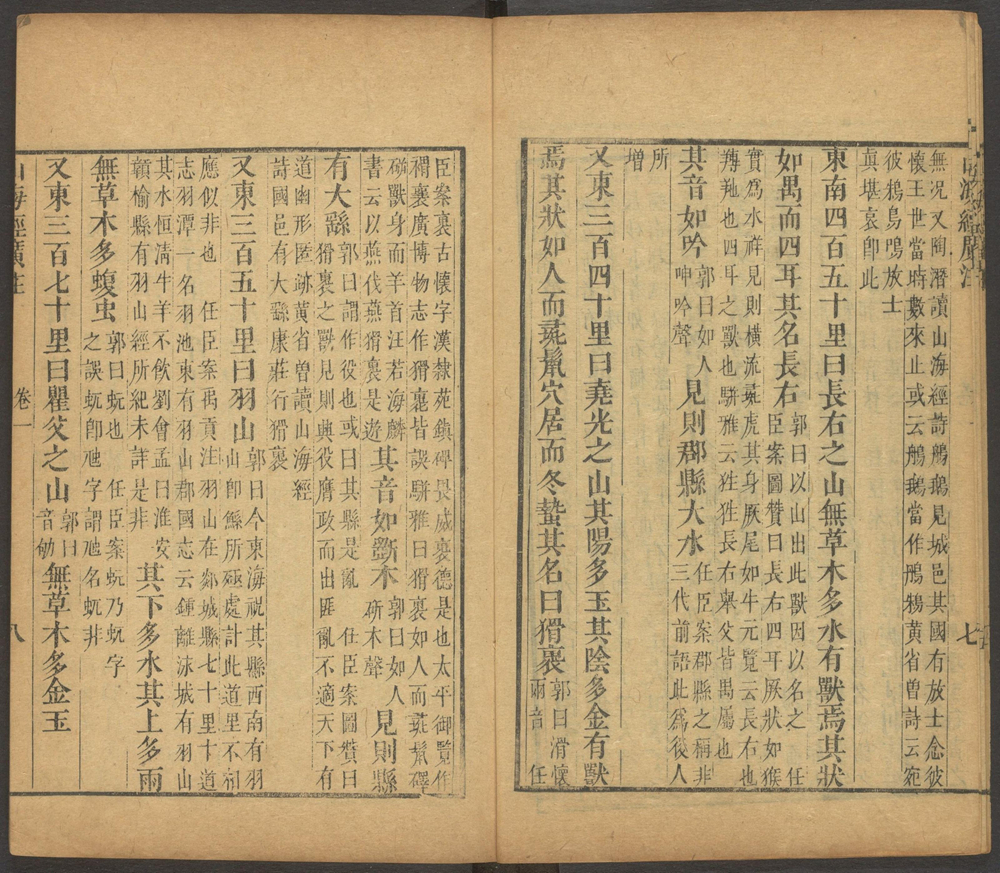 無况又陶潛讀山海經詩鵃鵝見城邑其國有放士念彼
懷王世當時數來止或云鵃鵝當作黃省曾詩云宛
彼鵃鳥鳴放士
眞堪哀卽此
東南四百五十里曰長右之山無草木多水有獸焉其狀
如禺而四耳其名長右
郭曰以山出此獸因以名之 任
臣案圖贊曰長右四耳厥狀如猴
實爲水祥見則橫流彘虎其身厥尾如牛元覽云長右也
也四耳之獸也駢雅云狌狌長右舉父皆禺屬也
其音如吟
郭曰如人
呻吟聲
見則郡縣大水
任臣案郡縣之稱非
三代前語此爲後人
所
增
又東三百四十里曰堯光之山其陽多玉其陰多金有獸
焉其狀如人而彘鬣穴居而冬蟄其名曰猾褢
郭曰滑懷
兩音 任
七
臣案褢古懷字漢隸苑鎮碑畏威褢德是也太平御覽作
褶褢廣博物志作猾褢皆誤駢雅曰猾褢如人而彘鬣
獸身而羊首汪若海麟
書云以燕伐燕猾褢是遊
其音如斲木
郭曰如人
斫木聲
見則縣
有大繇
郭曰謂作役也或曰其縣是亂 任臣案圖贊曰
猾褢之獸見則興役膺政而出匪亂不適天下有
道幽形匿跡黃省曾讀山海經
詩國邑有大繇康莊行猾褢
又東三百五十里曰羽山
郭曰今東海祝其縣西南有羽
山卽鯀所殛處計此道里不相
應似非也 任臣案禹貢注羽山在郯城縣七十里十道
志羽潭一名羽池東有羽山郡國志云鍾離沬城有羽山
其水恒清牛羊不飮劉會孟曰淮安
贛榆縣有羽山經所紀未詳是非
其下多水其上多雨
無草木多蝮虫
郭曰蚖也 任臣案蚖乃蚖字
之誤蚖卽虺字謂虺名蚖非
又東三百七十里曰瞿父之山
郭曰
音劬
無草木多金玉
山海經廣注
卷一
八